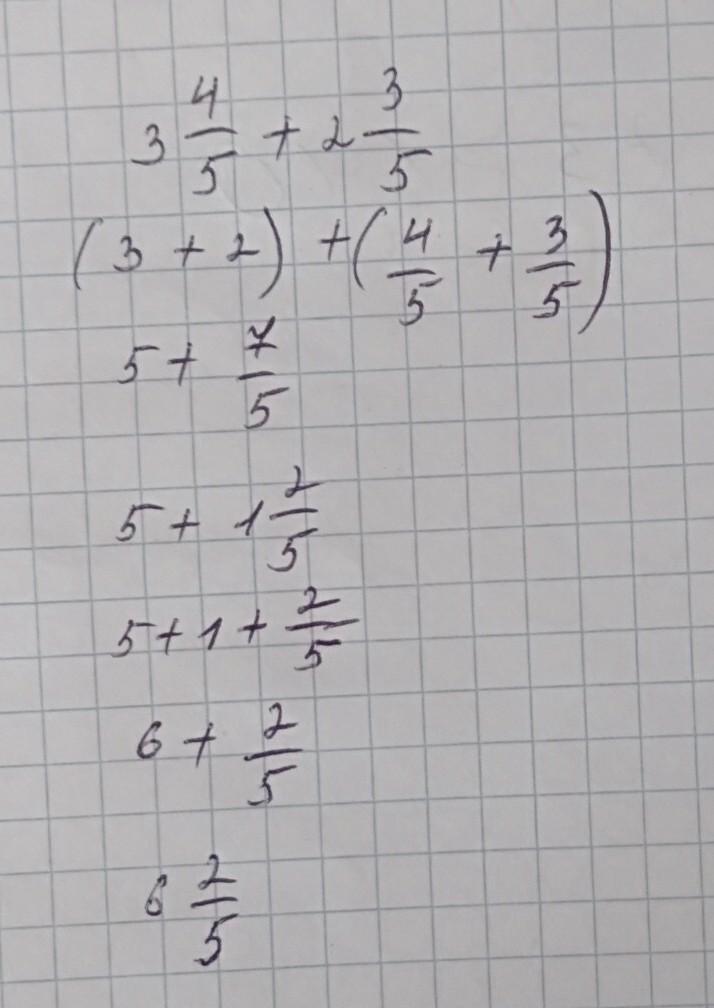 3 4/5 + 2 3/5
(3 + 2) + (4/5 + 3/5)
5 + 7/5
5 + 1 2/5
5 + 1 + 2/5
6 + 2/5
6 2/5